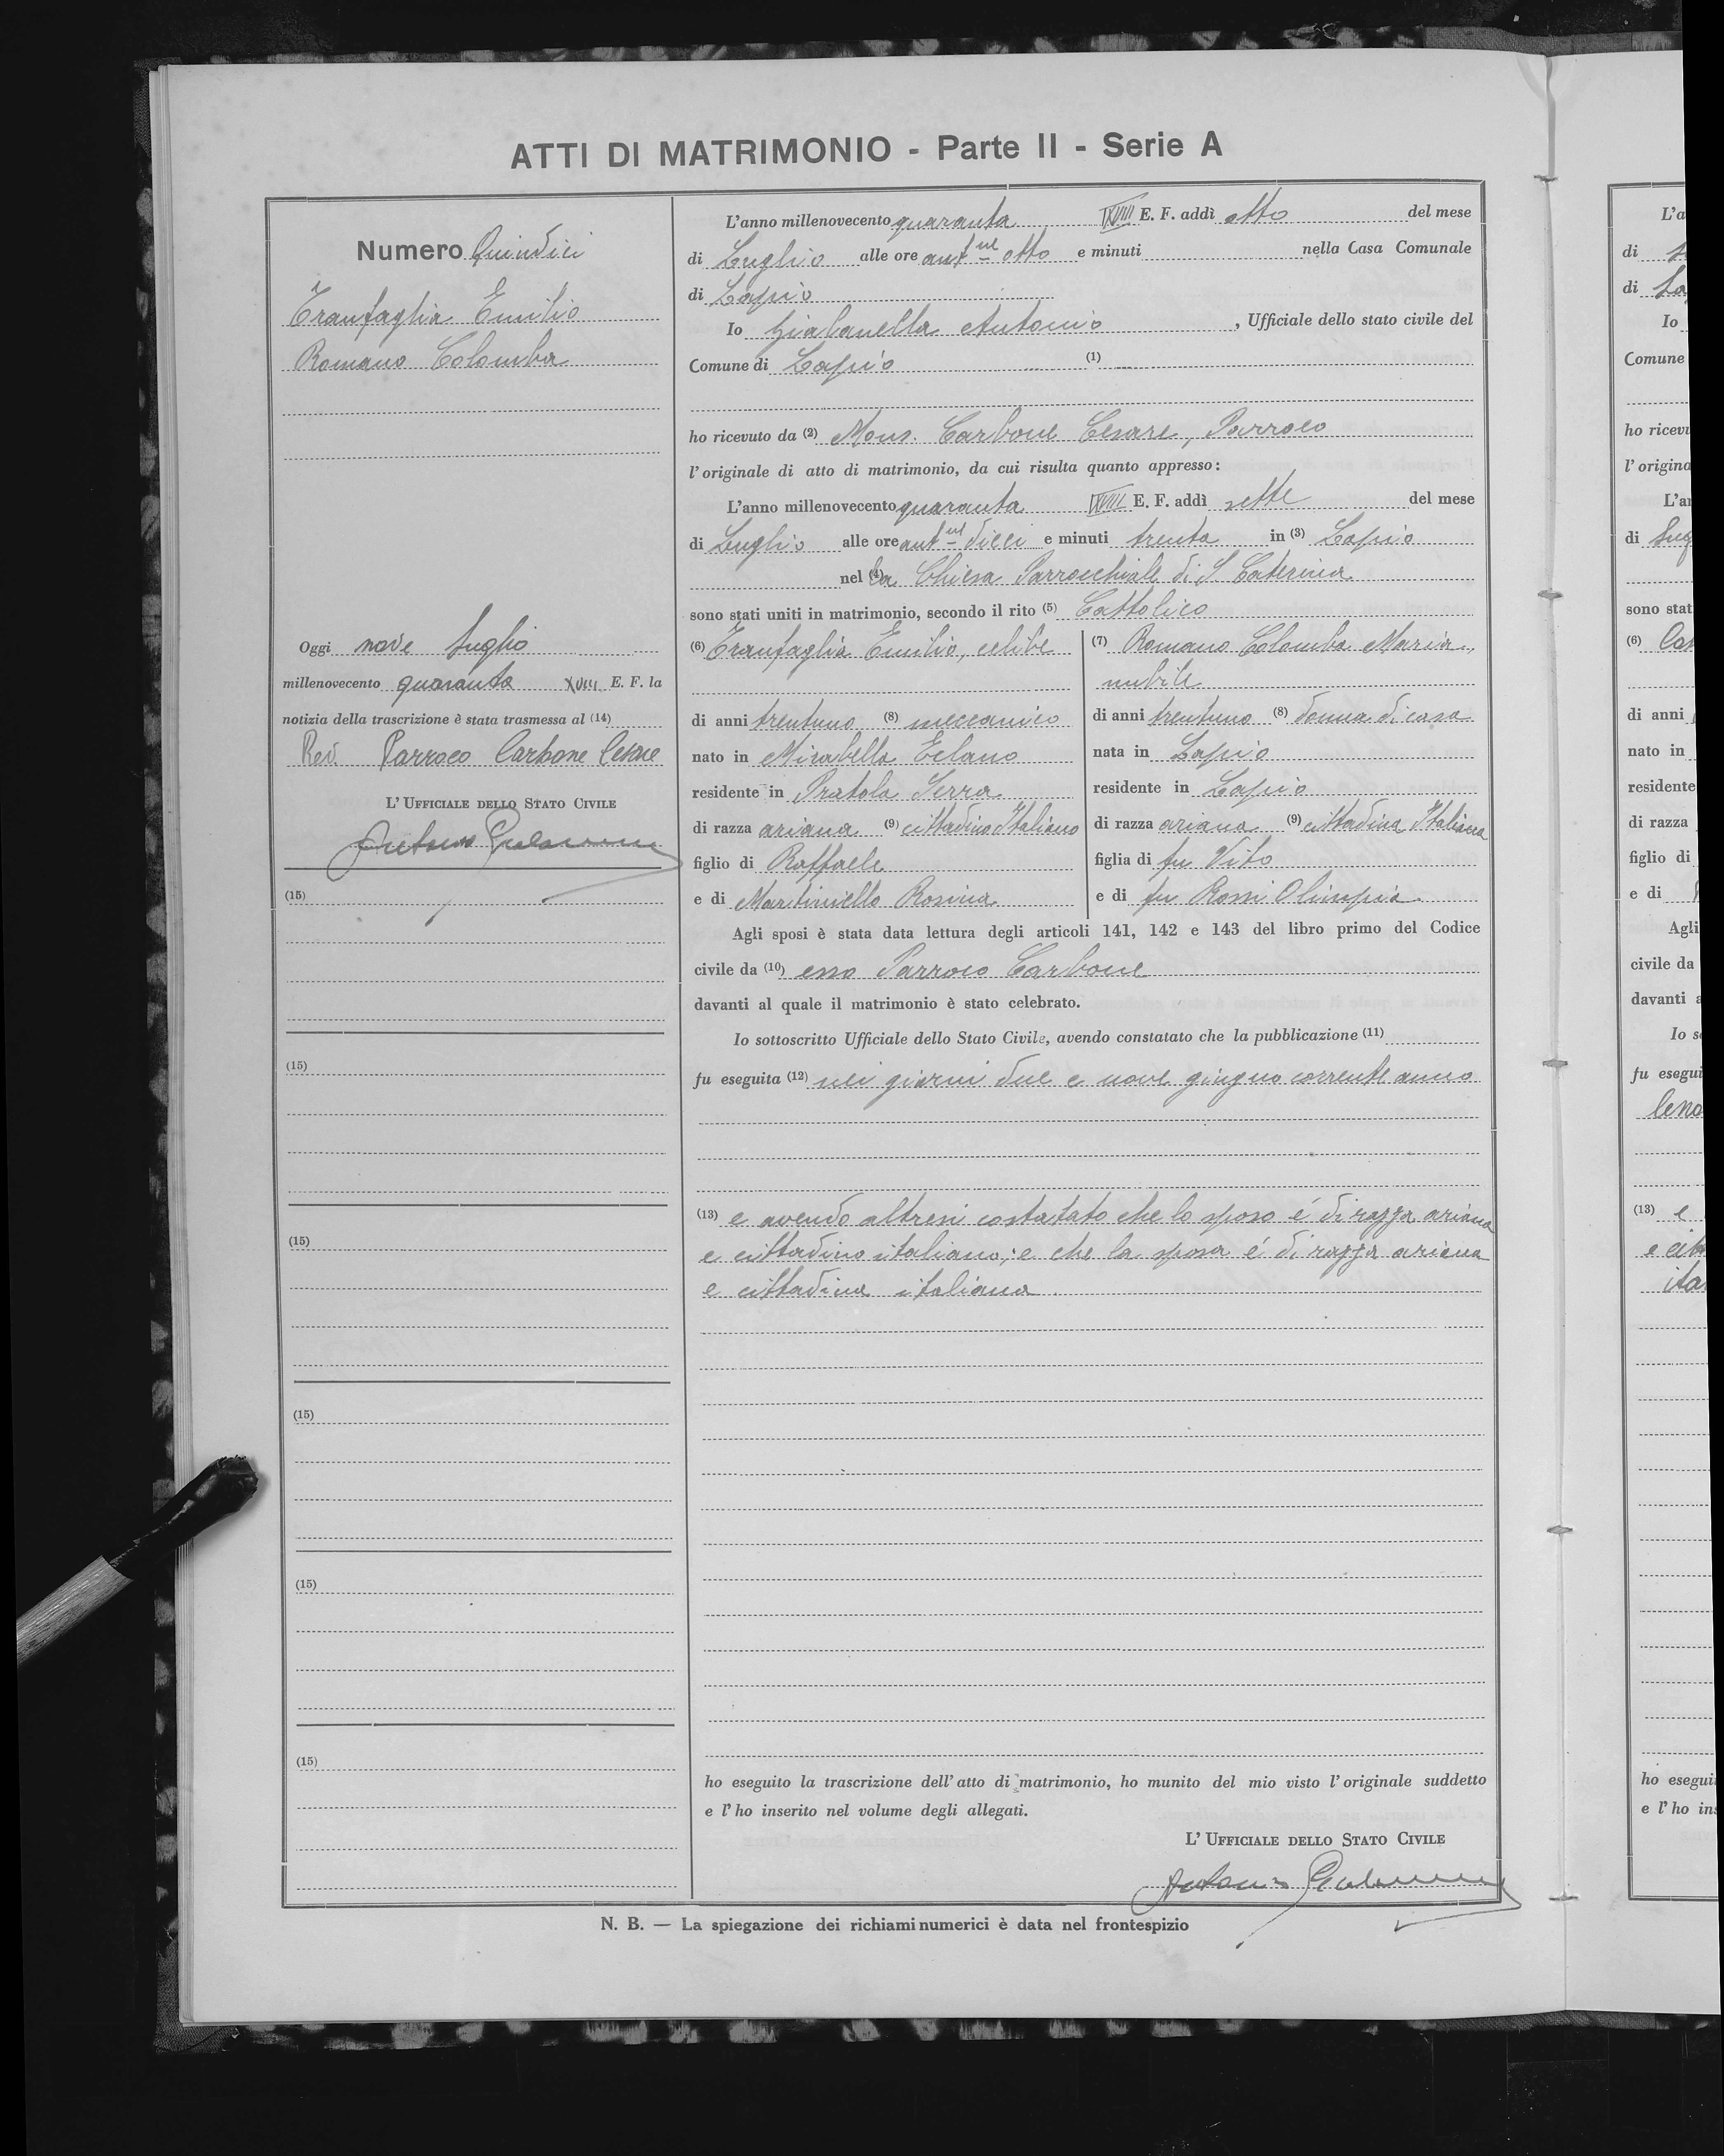 ATTI DI MATRIMONIO - Parte II - Serie A
Numero Quindici
Tranfaglia Emilio
Romano Colomba
Oggi nove Luglio
millenovecento quaranta XVIII E. F. la
notizia della trascrizione è stata trasmessa al (14)
Rev. Parroco Carbone Cesare
L'UFFICIALE DELLO STATO CIVILE
(15)
(15)
(15)
(15)
(15)
(15)
L'anno millenovecento quaranta XVIII E. F. addì otto del mese
di Luglio alle ore ant.ne otto e minuti nella Casa Comunale
di Lapio
Io Gialanella Antonio, Ufficiale dello stato civile del
Comune di Lapio (1)
ho ricevuto da (2) Mons. Carbone Cesare, Parroco
l'originale di atto di matrimonio, da cui risulta quanto appresso:
L'anno millenovecento quaranta XVIII E. F. addì sette del mese
di Luglio alle ore ant.ne dieci e minuti trenta in (3) Lapio
nel (4) la Chiesa Parrocchiale di S Caterina
sono stati uniti in matrimonio, secondo il rito (5) Cattolico
(6) Tranfaglia Emilio, celibe
di anni trentuno (8) meccanico
nato in Mirabella Eclano
residente in Pratola Serra
di razza ariana (9) cittadino Italiano
figlio di Raffaele
e di Martiniello Rosina
(7) Romano Colomba Maria,
nubile
di anni trentuno (8) donna di casa
nata in Lapio
residente in Lapio
di razza ariana (9) cittadina Italiana
figlia di fu Vito
e di fu Rossi Olimpia
Agli sposi è stata data lettura degli articoli 141, 142 e 143 del libro primo del Codice
civile da (10) esso Parroco Carbone
davanti al quale il matrimonio è stato celebrato.
Io sottoscritto Ufficiale dello Stato Civile, avendo constatato che la pubblicazione (11)
fu eseguita (12) nei giorni due e nove giugno corrente anno
(13) e avendo altresi costatato che lo sposo é di razza ariana
e cittadino italiano; e che la sposa é di razza ariana
e cittadina italiana
ho eseguito la trascrizione dell'atto di matrimonio, ho munito del mio visto l'originale suddetto
e l'ho inserito nel volume degli allegati.
L'UFFICIALE DELLO STATO CIVILE
N. B. — La spiegazione dei richiami numerici è data nel frontespizio
L'a
di
di La
Io
Comune
ho ricev
l'origina
L'a
di Lug
sono stat
(6)
di anni
nato in
residente
di razza
figlio di
e di
Agli
civile da
davanti a
Io s
fu esegui
(13) e
e cit
ita
ho esegui
e l'ho ins